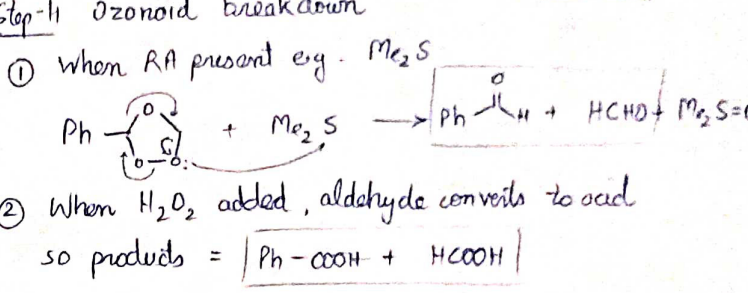 Step-4 Ozonoid breakdown
① When RA present e.g. Me₂S
Ph O O-O: + Me₂S → Ph O H + HCHO + Me₂S=
② When H₂O₂ added, aldehyde converts to acid
so products = Ph-COOH + HCOOH